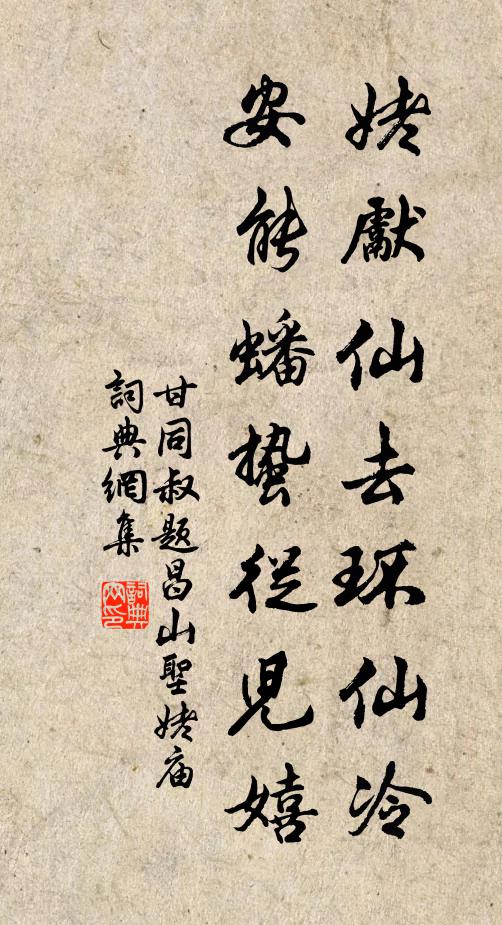 姥獻仙去环仙冷
安能蟠蟄從兒嬉
甘同叔题昌山聖姥庙
詞典網集
詞典网印